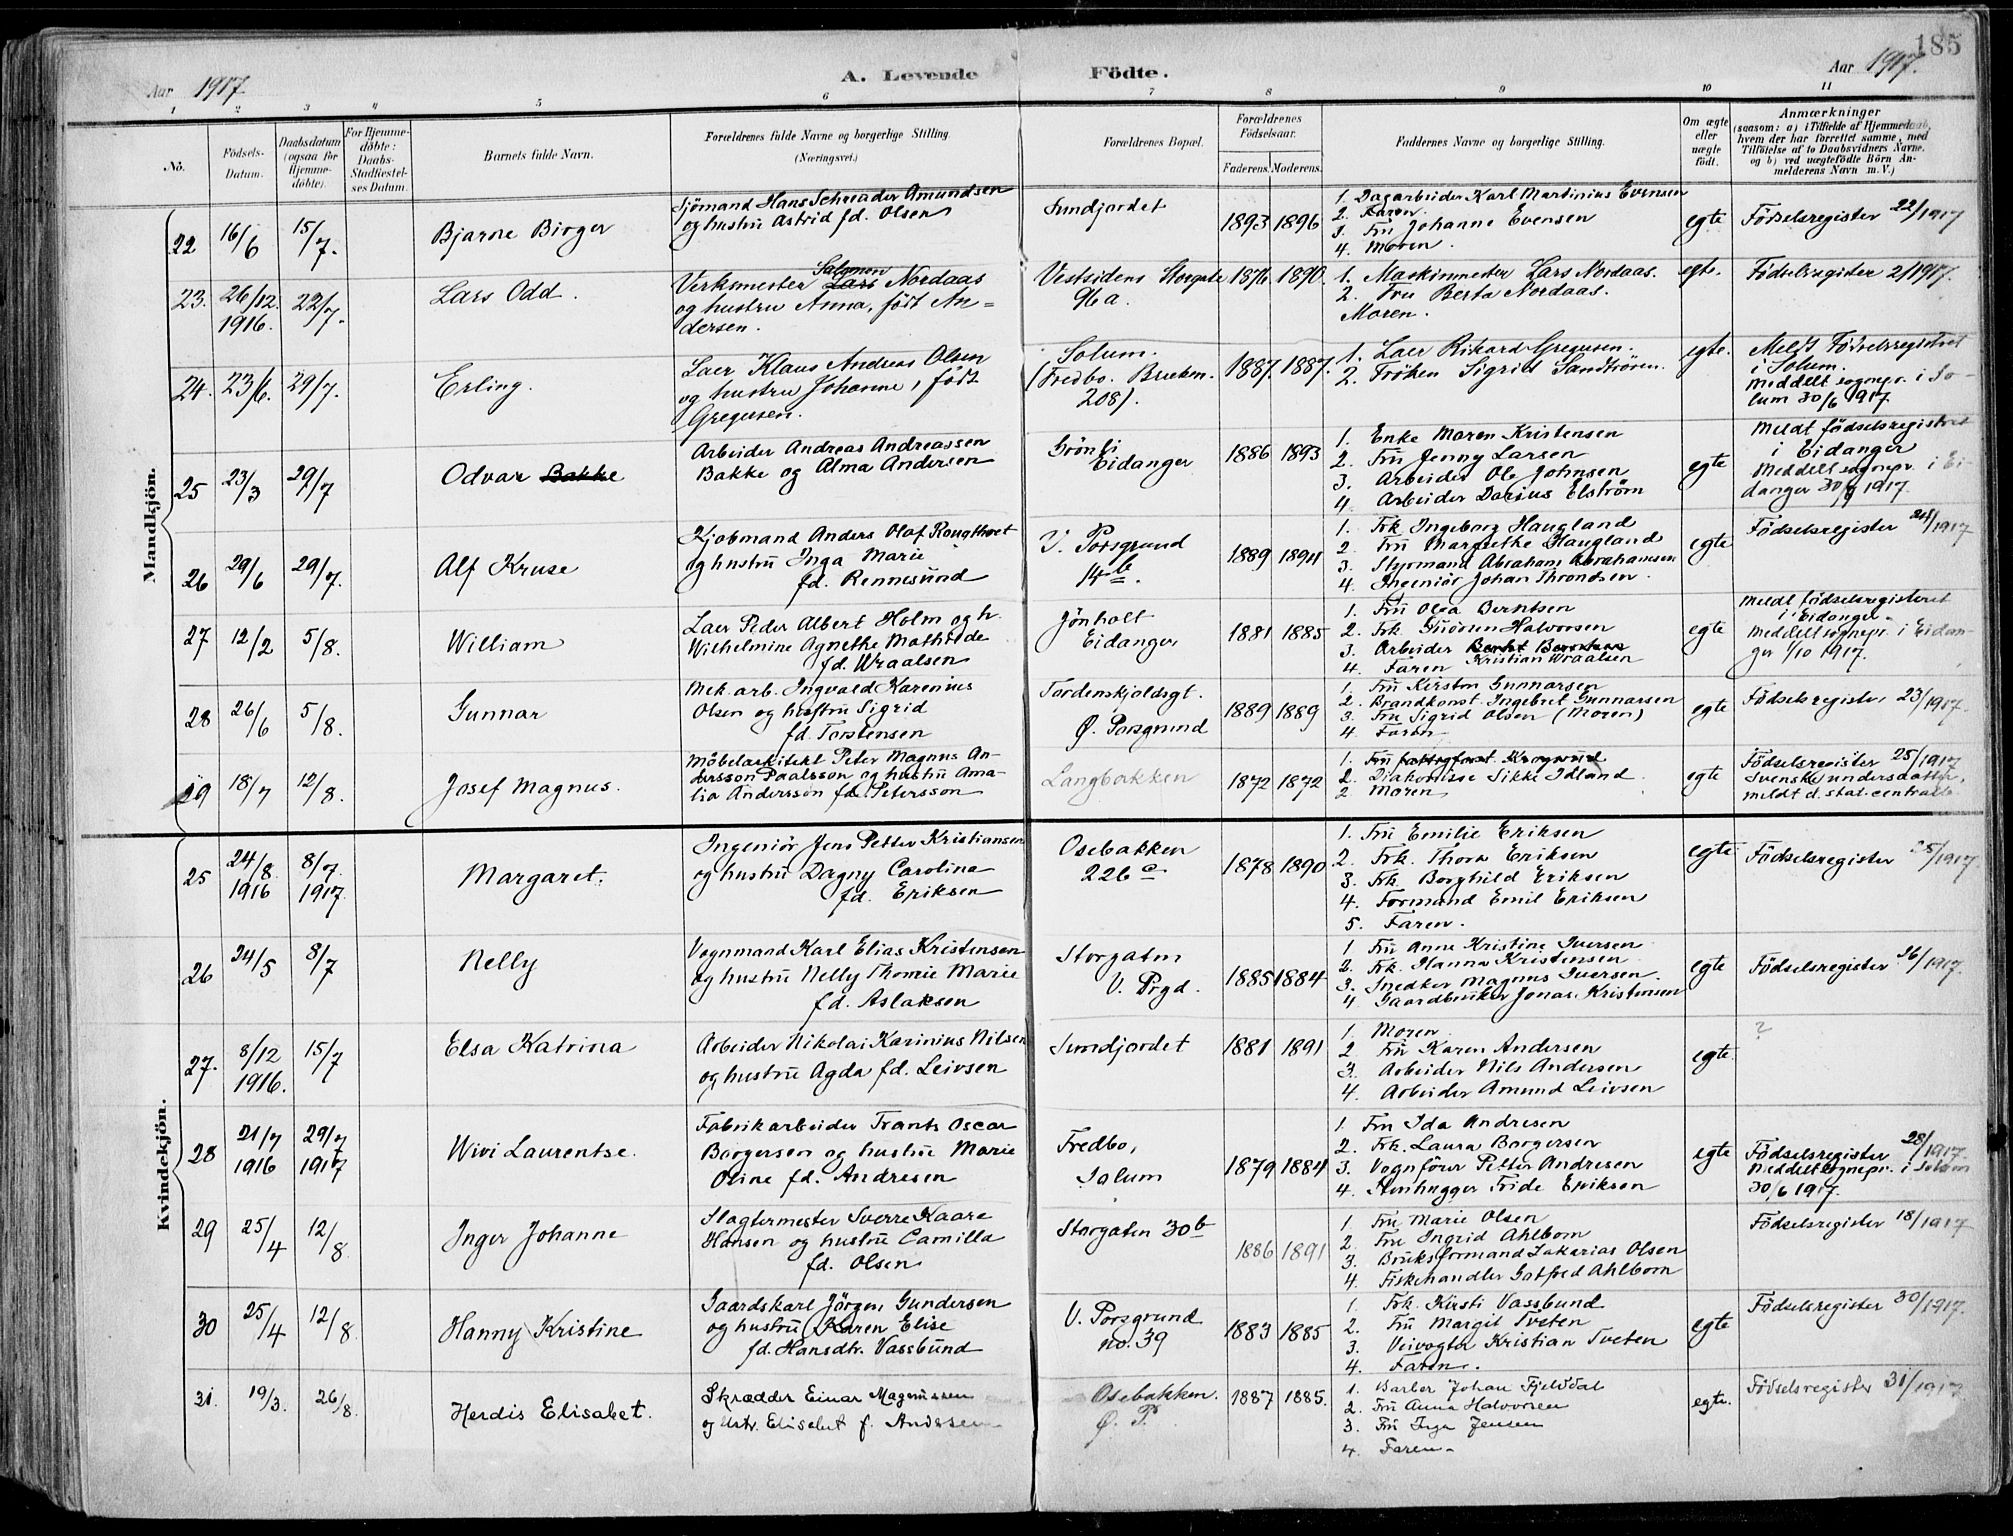 185
Aar 1917
A. Levende Födte.
Aar 1917.
1 2 3 4 5 6 7 8 9 10 11
No.
Födsels-
Datum.
Daabsdatum
(ogsaa for
Hjemme-
döbte).
For Hjemme-
döbte:
Daabs-
Stadfæstel-
ses Datum.
Barnets fulde Navn.
Forældrenes fulde Navne og borgerlige Stilling.
(Næringsvei.)
Forældrenes Bopæl.
Forældrenes
Födselsaar.
Faderens. Moderens.
Faddernes Navne og borgerlige Stilling.
Om ægte
eller
uægte
födt.
Anmærkninger
(saasom: a) i Tilfælde af Hjemmedaab,
hvem der har forrettet samme, med
Tilföielse af to Daabsvidners Navne.
og b) ved uægtefödte Börn An-
melderens Navn m. V.)
Mandkjön.
22 16/6 15/7. Bjarne Birger
Sjömand Hans Schreader Amundsen
og hustru Astrid fd. Olsen
Sundjordet
1893 1896
1. Dagarbeider Karl Martinius Evensen
2. Faren
3. Fru Johanne Evensen
4. Moren.
egte
Födselsregister 22/1917
23. 26/12. 1916. 22/7. Lars Odd.
Verksmester Lars Salomon Nordaas
og hustru Anna, födt An-
dersen.
Vestsidens Storgate
96 a.
1876 1890.
1. Maskinmester Lars Nordaas.
2. Fru Berta Nordaas.
Moren.
egte.
Födselsregister 2/1917.
24. 23/6. 29/7. Erling.
Laer Klaus Andreas Olsen
og hustru Johanne, födt
Gregusen.
Solum.
(Fredbo. Brukm.
208).
1887. 1887.
1. Laer Rikard Gregusen.
2. Fröken Sigrid Sandström.
egte.
Meldt Födselsregistret
i Solum.
Meddelt sognepr. i So-
lum 30/6 1917
25 23/3 29/7 Odvar Bakke
Arbeider Andreas Andreassen
Bakke og Alma Andersen
Grönli
Eidanger
1886 1893
1. Enke Maren Kristensen
2. Fru Jenny Larsen
3. Arbeider Ole Johnsen
4. Arbeider Darius Elström
egte
Meldt födselsregistret
i Eidanger
Meddelt sognepr. i Ei-
danger 30/9 1917.
26 29/6 29/7. Alf Kruse
Kjöbmand Anders Olaf Rougtvet
og hustru Inga Marie
fd. Rennesund
V. Porsgrund
14 b.
1889 1894
1. Frk Ingeborg Haugland
2. Fru Margrethe Haugland
3. Styrmand Abraham Abrahamsen
4. Ingeniör Johan Throndsen.
egte
Födselsregister 24/1917
27 12/2 5/8. William
Laer Peder Albert Holm og h.
Wilhelmine Agnethe Mathilde
fd. Wraalsen
Jönholt
Eidanger
1881 1885
1. Fru Olga Berntsen
2. Frk. Gudrun Halvorsen
3. Arbeider Kristian Wraalsen
4. Faren
egte
Meldt födselsregisteret
i Eidanger.
Meddelt sognepr. i Eidan-
ger 1/10 1917.
28 26/6 5/8. Gunnar
Mek. arb. Ingvald Karenius
Olsen og hustru Sigrid
fd. Torstensen
Tordenskjoldsgt.
Ø. Porsgrund
1889 1889
1. Fru Kirsten Gunnarsen
2. Brandkonst. Ingebret Gunnarsen
3. Fru Sigrid Olsen (Moren)
4. Faren
egte
Födselsregister 23/1917.
29 18/7 12/8. Josef Magnus.
Möbelarkitekt Peter Magnus An-
dersson Paalsson og hustru Ama-
lia Andersson fd. Petersson
Langbakken
1872 1872
1. Fru Krogsrud
2. Diakonisse Sikke Idland.
2 Moren
egte
Födselsregister 25/1917
Svenske undersaatter,
meldt d. stat. centralb.
Kvindekjön.
25 24/8. 1916 8/7. 1917. Margaret.
Ingeniör Jens Petter Kristiansen
og hustru Dagny Carolina
fd. Eriksen
Osebakken
226 c
1878 1890
1. Fru Emilie Eriksen
2. Frk. Thora Eriksen
3. Frk Borghild Eriksen
4. Formand Emil Eriksen
5. Faren.
egte
Födselsregister 25/1917.
26 24/5 8/7 Nelly
Vognmand Karl Elias Kristensen
og hustru Nelly Thomie Marie
fd. Aslaksen
Storgaten
V. Prgd.
1885 1884
1 Fru Anne Kristine Iversen
2. Frk. Hanna Kristensen
3. Snedker Magnus Iversen.
4. Gaardbruker Jonas Kristensen
egte
Födselsregister 26/1917.
27. 8/12 1916. 15/7 Elsa Katrina
Arbeider Nikolai Karinius Nilsen
og hustru Agda fd. Leivsen
Sundjordet
1881 1891
1. Moren
2 Fru Karen Andersen
3. Arbeider Nils Andersen
4. Arbeider Amund Leivsen
egte
?
28 21/7 1916 29/7 1917 Wivi Laurentse.
Fabrikarbeider Frants Oscar
Borgersen og hustru Marie
Oline fd. Andresen
Fredbo,
Solum
1879 1884
1. Fru Ida Andresen
2. Frk. Laura Borgersen
3. Vognförer Petter Andresen
4. Stenhugger Fride Eriksen
egte
Födselsregister 28/1917.
Meddelt sognepr. i Solum
30/6 1917.
29 25/4 12/8 Inger Johanne
Slagtermester Sverre Kaare
Hansen og hustru Camilla
fd. Olsen
Storgaten 30 b
1886 1891
1 Fru Marie Olsen
2. Fru Ingrid Ahlborn
3. Bruksformand Zakarias Olsen
4. Fiskehandler Gotfred Ahlborn
Födselsregister 18/1917
30 25/4 12/8 Hanny Kristine
Gaardskarl Jörgen Gundersen
og hustru Karen Elise
fd. Hansdtr. Vassbund
V. Porsgrund
no. 39
1883 1885
1. Frk. Kirsti Vassbund
2. Fru Margit Tveten
3. Veivogter Kristian Tveten
4. Faren.
egte
Födselsregister 30/1917.
31. 19/3. 26/8. Herdis Elisabet.
Skrædder Einar Magnussen
og hstr. Elisabet f. Anderssen
Osebakken.
Ø. P.
1887 1885.
1. Barber Johan Fjelddal
2. Fru Anna Halvorsen
3. Fru Inga Jensen
4. Faren.
egte.
Födselsregister 31/1917